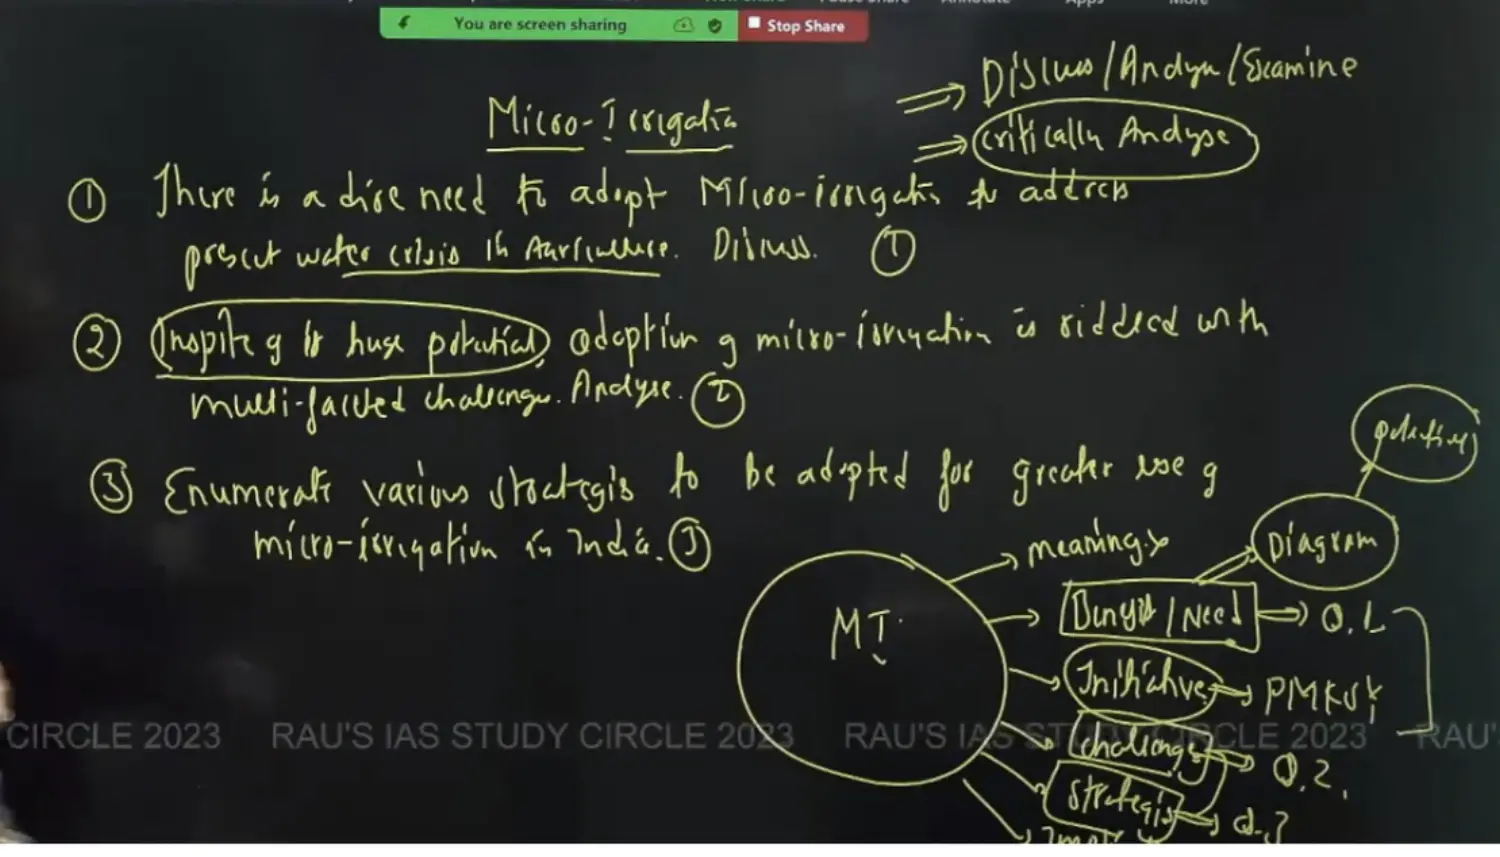 You are screen sharing
Stop Share
Discuss/Analyse/Examine
Critically Analyse
Micro-Irrigation
① There is a dire need to adopt Micro-irrigation to address
present water crisis in Agriculture. Discuss. ①
② Inspite of its huge potential, adoption of micro-irrigation is riddled with
multi-faceted challenges. Analyse. ②
③ Enumerate various strategies to be adopted for greater use of
micro-irrigation in India. ③
Diagram
meaning
MI
Need
Q.1
Initiative
PMKSY
Challenges
Q.2.
Strategies
Q.3
CIRCLE 2023 RAU'S IAS STUDY CIRCLE 2023 RAU'S IAS STUDY CIRCLE 2023 RAU'